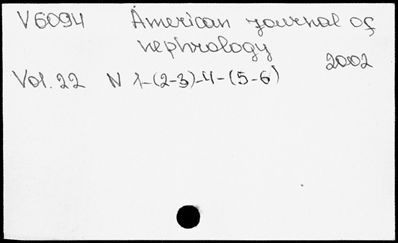 V6094 American journal of
nephrology
2002
Vol. 22 N 1-(2-3)-4-(5-6)